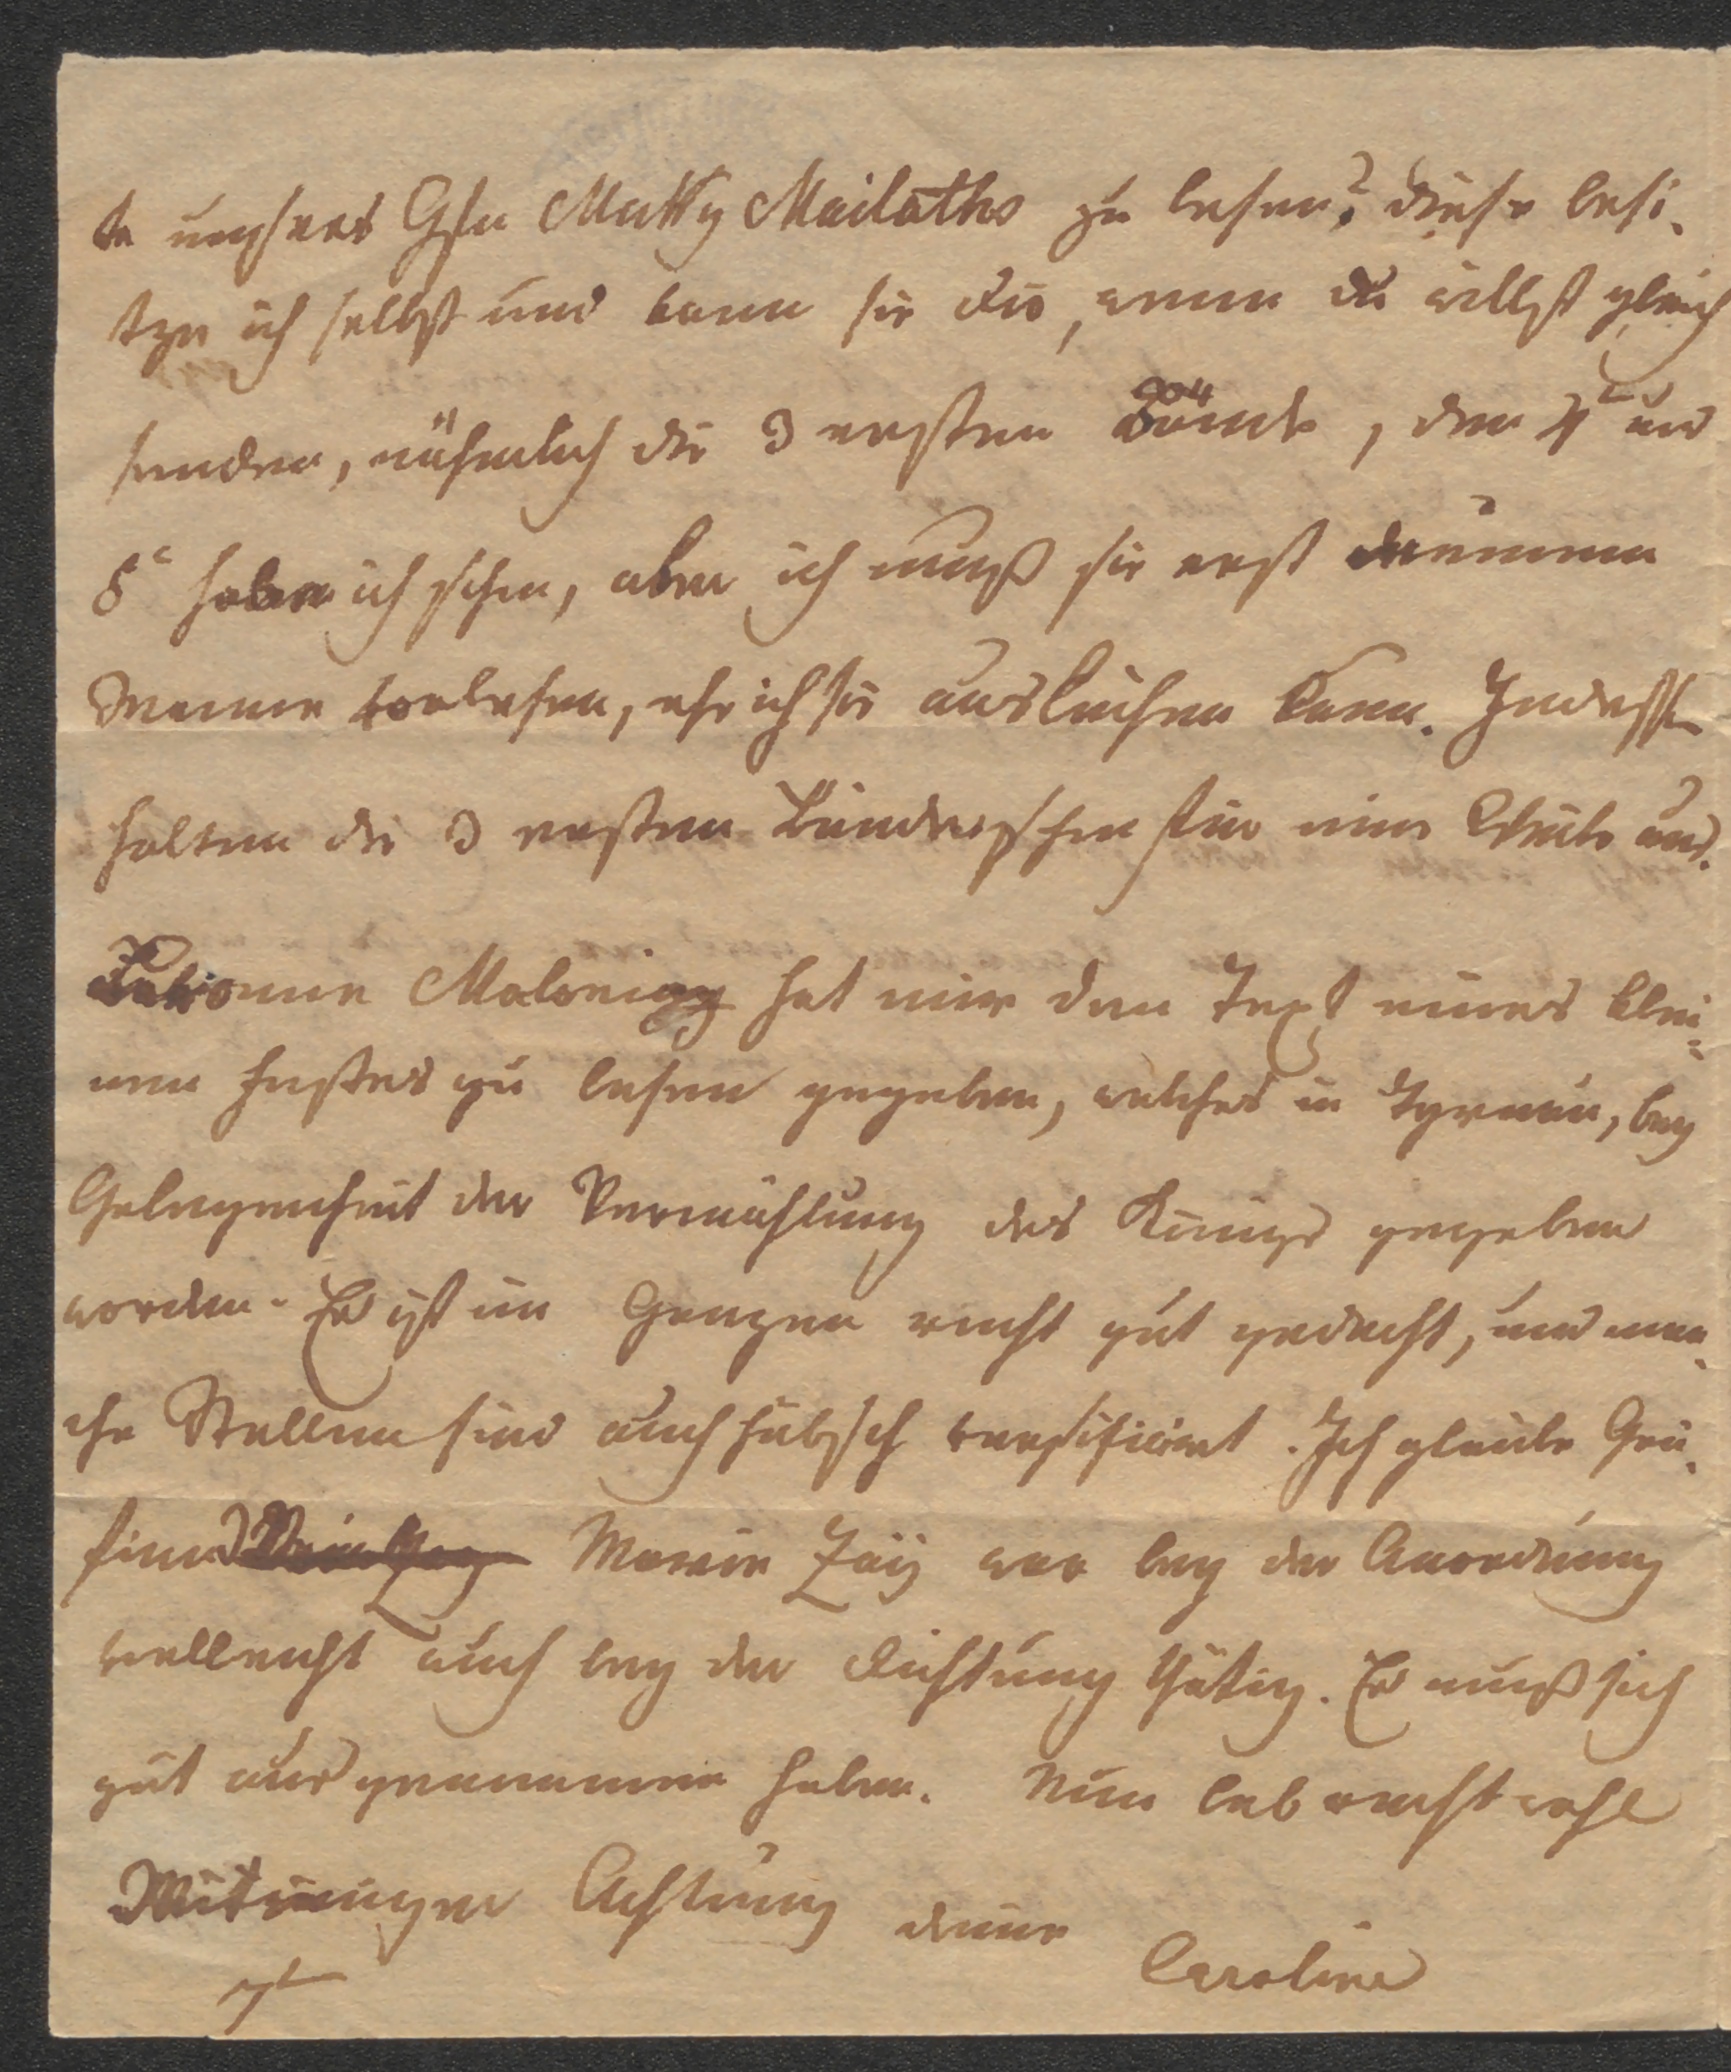 te unsres Gfn Matky Mailaths zu lesen? diese besi-
tze ich selbst und kann sie dir, wenn du willst gleich
senden, nähmlich die 3 ersten Bände, den 4t und
5t habe ich schon, aber ich muß sie erst
Mamma vorlesen, ehe ich sie ausleihen kann. Indessen
halten die 3 ersten Bände schon für eine Weile aus.
Baronne Malonyay hat mir den Text eines klei-
nen Festes zu lesen gegeben, welches in Tyrnau, bey
Gelegenheit der Vermählung des Königs gegeben
worden. Es ist im Ganzen recht gut gedacht, und man-
che Stellen sind auch hübsch versificiert. Ich glaube Grä-
finn Marie Zay war bey der Anordnung
vielleicht auch bey der Dichtung thätig. Es muß sich
gut ausgenommen haben. Nun leb recht wohl
Mit inniger Achtung deine
Caroline